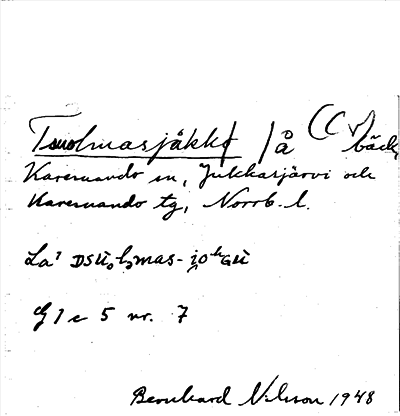 Tsuolmasjåkko / å (C v) bäck
Karesuando sn, Jukkasjärvi och
Karesuando tg, Norrb. l.
La
G1c 5 nr. 7
Bernhard Nilsson 1948